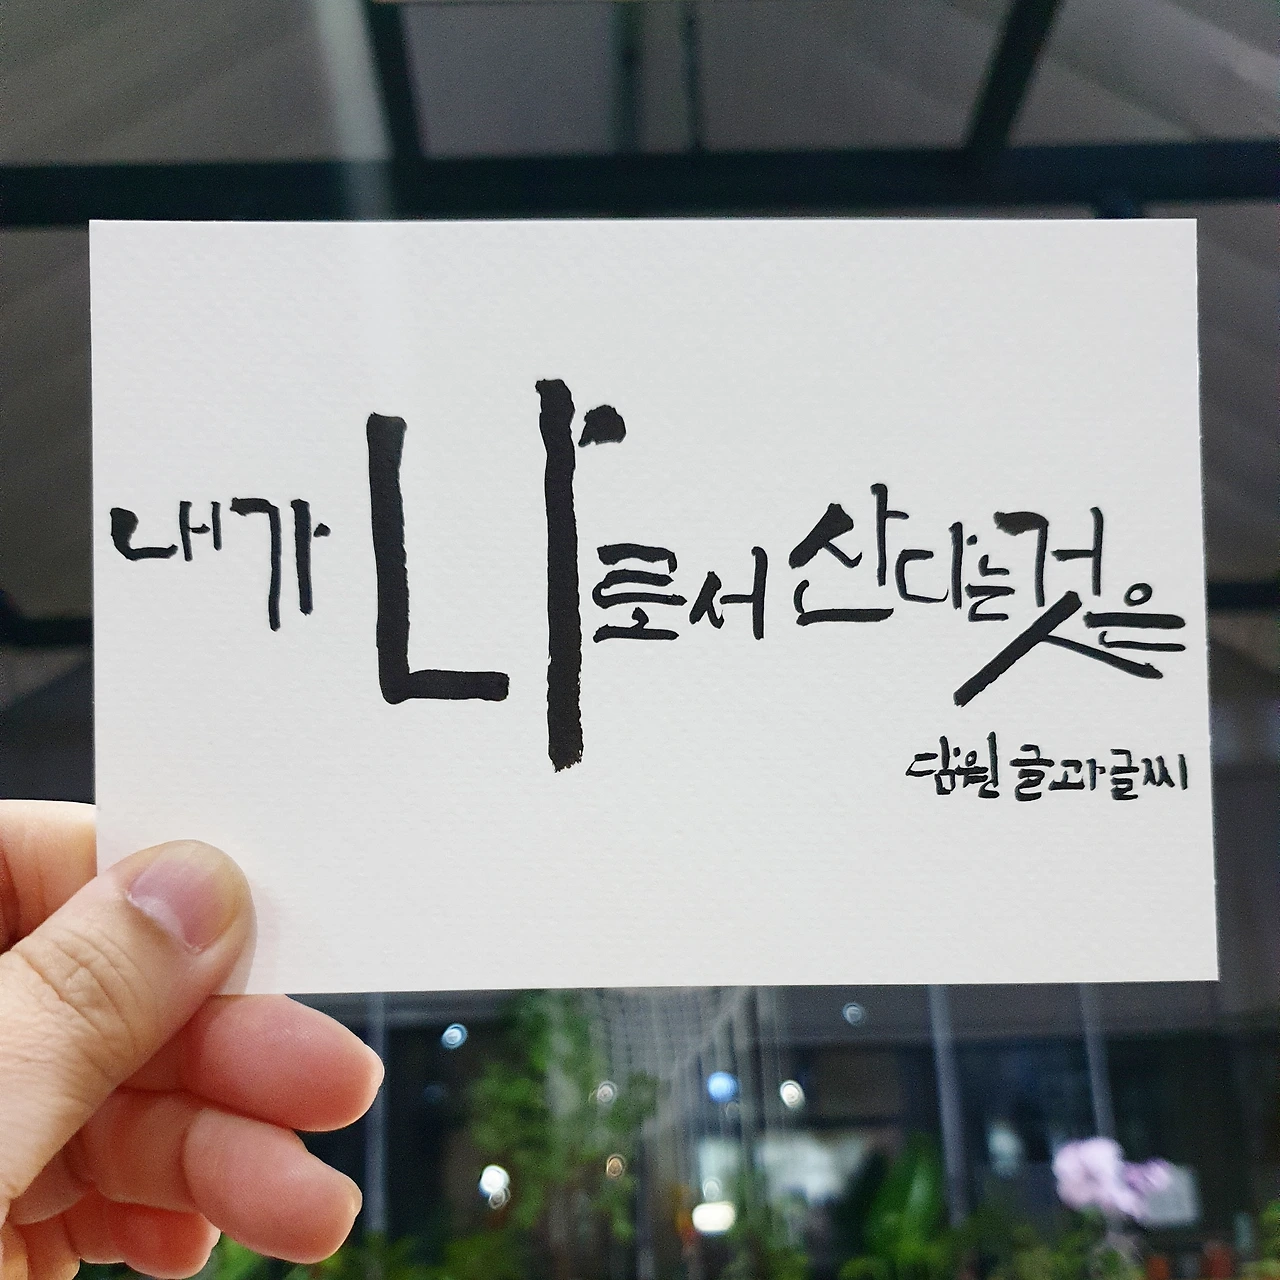 내가 나로서 산다는 것은
담원 글과 글씨